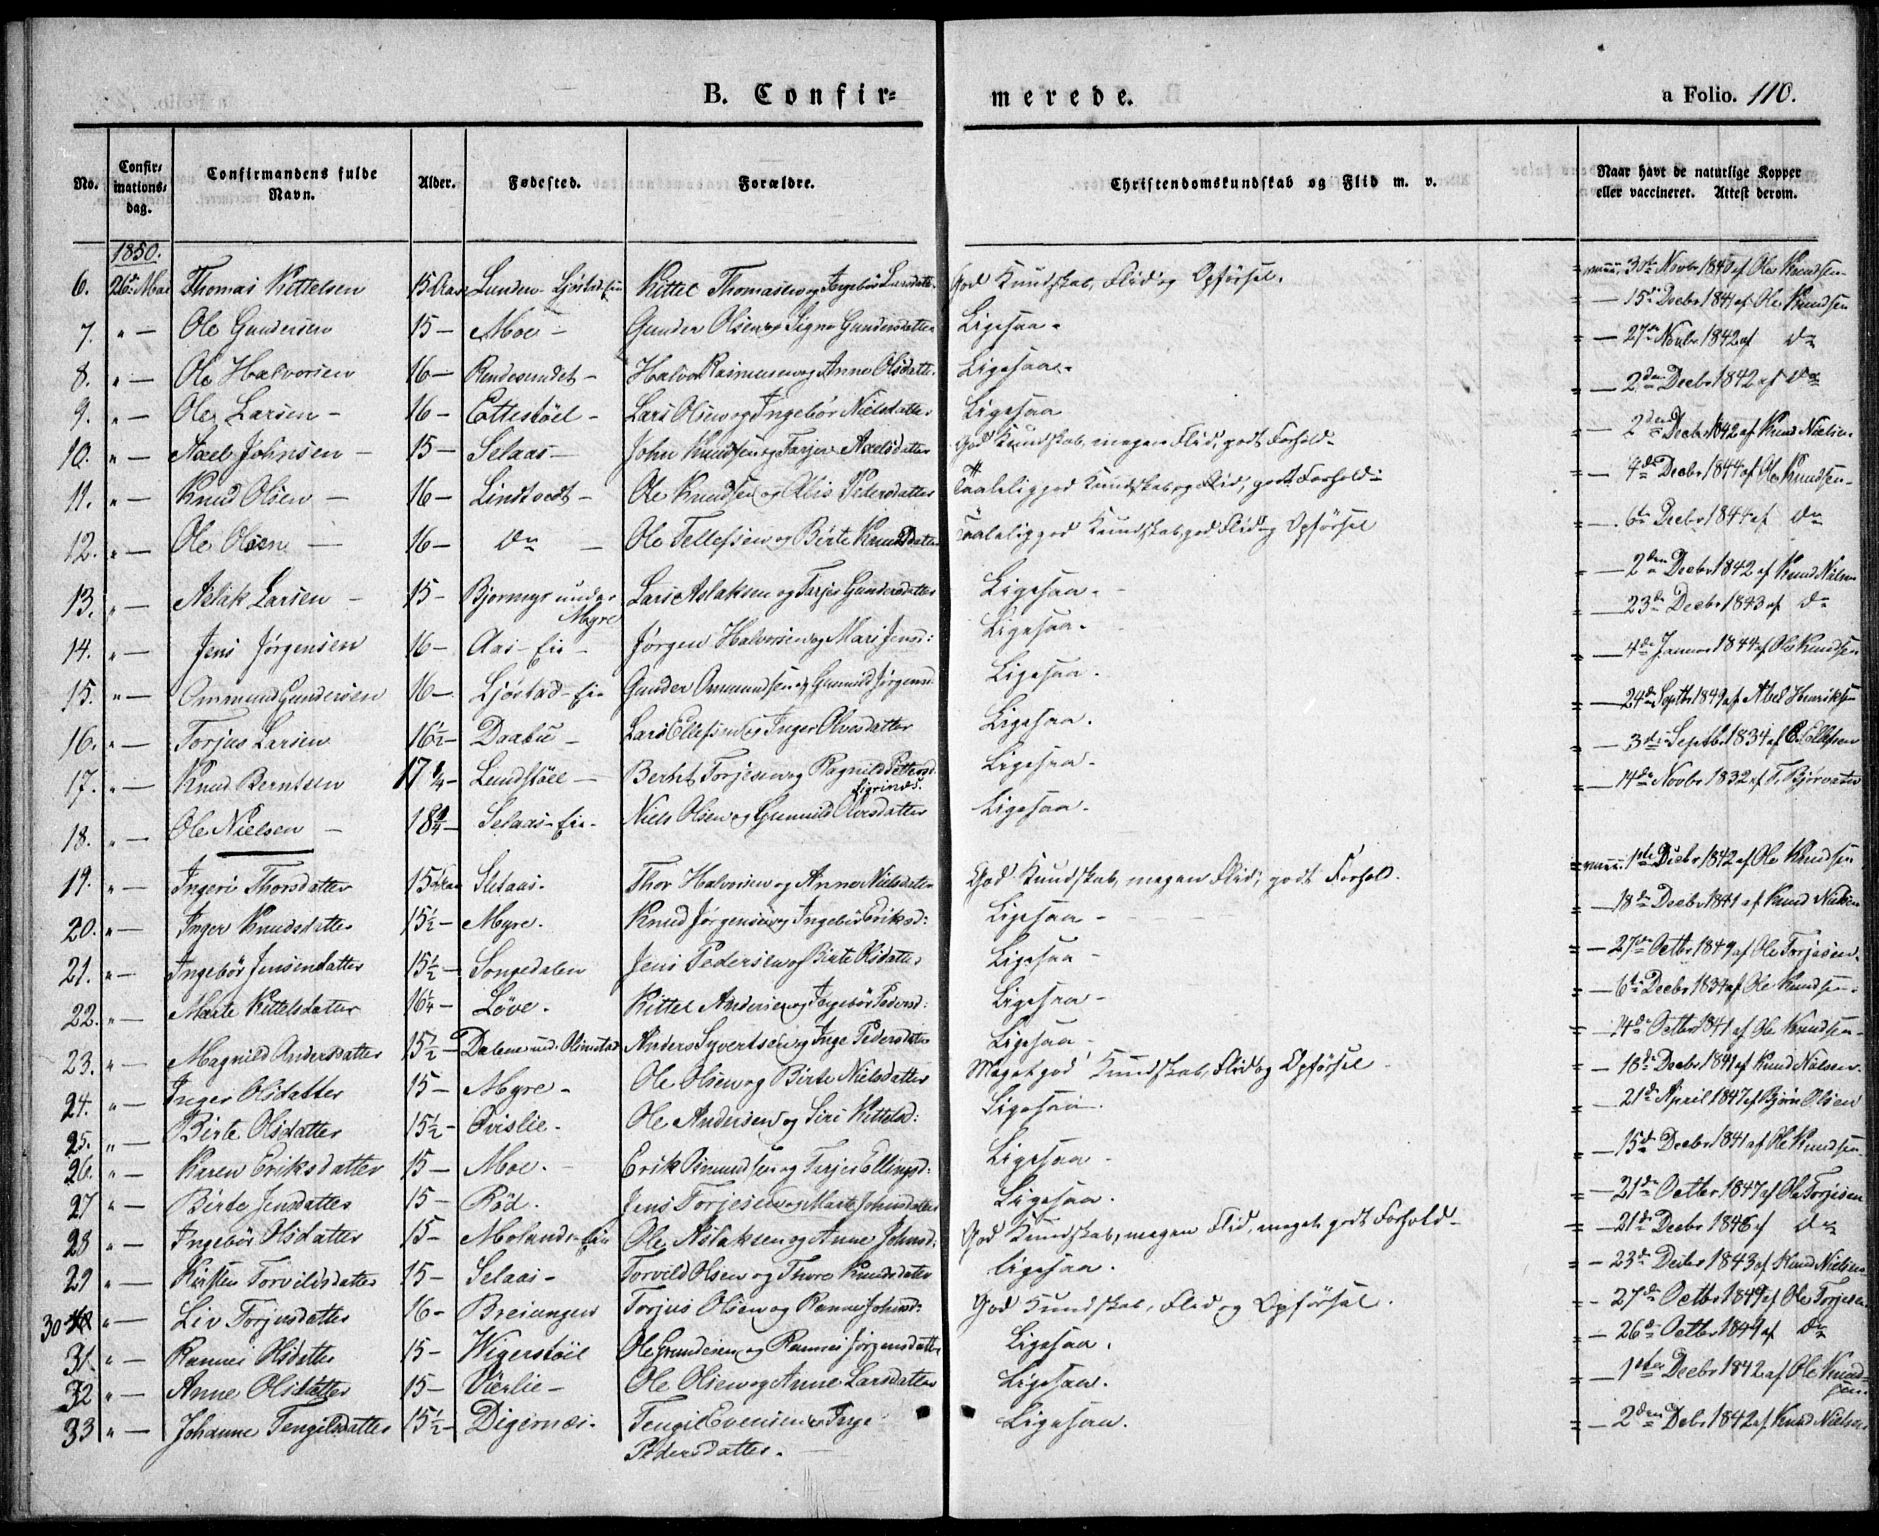 B. Confirmerede.
a Folio. 110.
No. Confirmationsdag. Confirmandens fulde Navn. Alder. Fødested. Forældre. Christendomskundskab og Flid m. v. Naar havt de naturlige Kopper eller vaccineret. Attest derom.
1850.
6. 26de Mai Thomas Kittelsen 15 Aar Lunden Ljøstad Eie Kittel Thomasen og Ingebör Larsdatter God Kundskab, Flid og Opförsel. 30te Novbr 1840 af Ole Knudsen
7. " — Ole Gundersen 15 — Moe — Gunder Olsen og Signe Gundersdatter Ligesaa. — 15de Decbr 1841 af Ole Knudsen
8. " — Ole Halvorsen 16 — Rendesundet — Halvor Rasmusen og Anne Olsdatter Ligesaa. — 27de Novbr 1842 af do
9. " — Ole Larsen — 16 — Ettestöel — Lars Olsen og Ingebör Nielsdatter Ligesaa — 2den Decbr 1842 af do
10. " — Axel Johnsen — 15 — Selaas — John Knudsen og Tarjer Axelsdatter God Kundskab, megen Flid, godt Forhold — 2den Decbr 1842 af Knud Nielsen
11. " — Knud Olsen — 16 — Lindtvedt — Ole Knudsen og Pedersdatter Taalelig god Kundskab og Flid, godt Forhold — 4de Decbr 1844 af Ole Knudsen
12. " — Ole Olsen — 16 — do — Ole Tellefsen og Birte Knudsdatter Taalelig god Kundskab, god Flid og Opförsel — 6te Decbr 1844 af do
13. " — Aslak Larsen — 15 — Bjormyr under Myre Lars Aslaksen og Tarjer Gundersdatter Ligesaa. — 2den Decbr 1842 af Knud Nielsen
14. " — Jens Jørgensen 16 — Aas-Eie — Jørgen Halvorsen og Mari Jensd: Ligesaa. — 23de Decbr 1843 af do
15. " — Ommund Gundersen 16 — Ljöstad-Eie Gunder Ommundsen og Gunnild Jørgensd Ligesaa. — 4de Januar 1844 af Ole Knudsen
16. " — Torjus Larsen 16½ — Daabu — Lars Ellefsen og Inger Olvesdatter Ligesaa. — 24de Septbr 1849 af Abel Henriksen
17. " — Knud Berntsen 17¼ — Lundstöel — Bernt Torjesen og Ragnild Pettersd Ligesaa. — 3de Septbr 1834 af E. Ellefsen
18. " — Ole Nielsen — 18¼ — Selaas-Eie — Niels Olsen og Gunnild Olversdatter Ligesaa. — 14de Novbr 1832 af T. Bjørvatn
19. " — Ingeri Thorsdatter 15 Aar Selaas. Thor Halvorsen og Anne Nielsdatter God Kundskab, megen Flid, godt Forhold. 1ste Decbr 1842 af Ole Knudsen
20. " — Inger Knudsdatter 15½ — Myre. Knud Jørgensen og Ingebör Eriksd: Ligesaa — 18de Decbr 1841 af Knud Nielsen
21. " — Ingebör Jensdatter 15½ — Songedalen Jens Pedersen og Birte Olsdatter Ligesaa — 27de Octbr 1849 af Ole Torjesen
22. " — Marte Kittelsdatter 16¼ — Löve. Kittel Andersen og Ingebör Pedersd: Ligesaa — 6te Decbr 1834 af Ole Knudsen.
23. " — Magnild Andersdatter 15½ — Dalene und. Olimstad Anders Syvertsen og Inge Pedersdatter Ligesaa — 14de Octbr 1841 af Ole Knudsen
24. " — Inger Olsdatter 15 — Myre — Ole Olsen og Birte Nielsdatter Meget god Kundskab, Flid og Opförsel — 18de Decbr 1841 af Knud Nielsen.
25. " — Birte Olsdatter 15½ — Qvislie. Ole Andersen og Siri Kittelsd: Ligesaa. — 21de April 1847 af Björn Olsen
26. " — Karen Eriksdatter 15 — Moe. Erik Omundsen og Tarjer Ellingsd: Ligesaa — 15de Decbr 1841 af Ole Knudsen
27 " — Birte Jensdatter 15 — Röd. Jens Torjesen og Marte Johnsdatter Ligesaa. — 21de Octbr 1847 af Ole Torjesen
28 " — Ingebör Olsdatter 15 — Molands-Eie Ole Aslaksen og Anne Johnsd: God Kundskab, megen Flid, meget godt Forhold — 21de Decbr 1848 af do
29 " — Kirsten Torvildsdatter 15 — Selaas — Torvild Olsen og Thore Knudsdatter Ligesaa. — 23de Decbr 1843 af Knud Nielsen
30 " — Liv Torjusdatter 16 — Breiungen Torjus Olsen og Rannei Johnsd: God Kundskab, Flid og Opförsel. — 27de Octbr 1849 af Ole Torjesen
31 " — Rannei Olsdatter 15 — Wigerstöel Ole Gundersen og Rannei Jörgensdatter Ligesaa. — 26de Octbr 1849 af do
32 " — Anne Olsdatter 15 — Vierlie — Ole Olsen og Anne Larsdatter Ligesaa. — 1ste Decbr 1842 af Ole Knudsen
33 " — Johanne Tengilsdatter 15½ — Digernæs. Tengil Evensen og Inge Pedersdatter. — Ligesaa. — 2den Decbr 1842 af Knud Nielsen